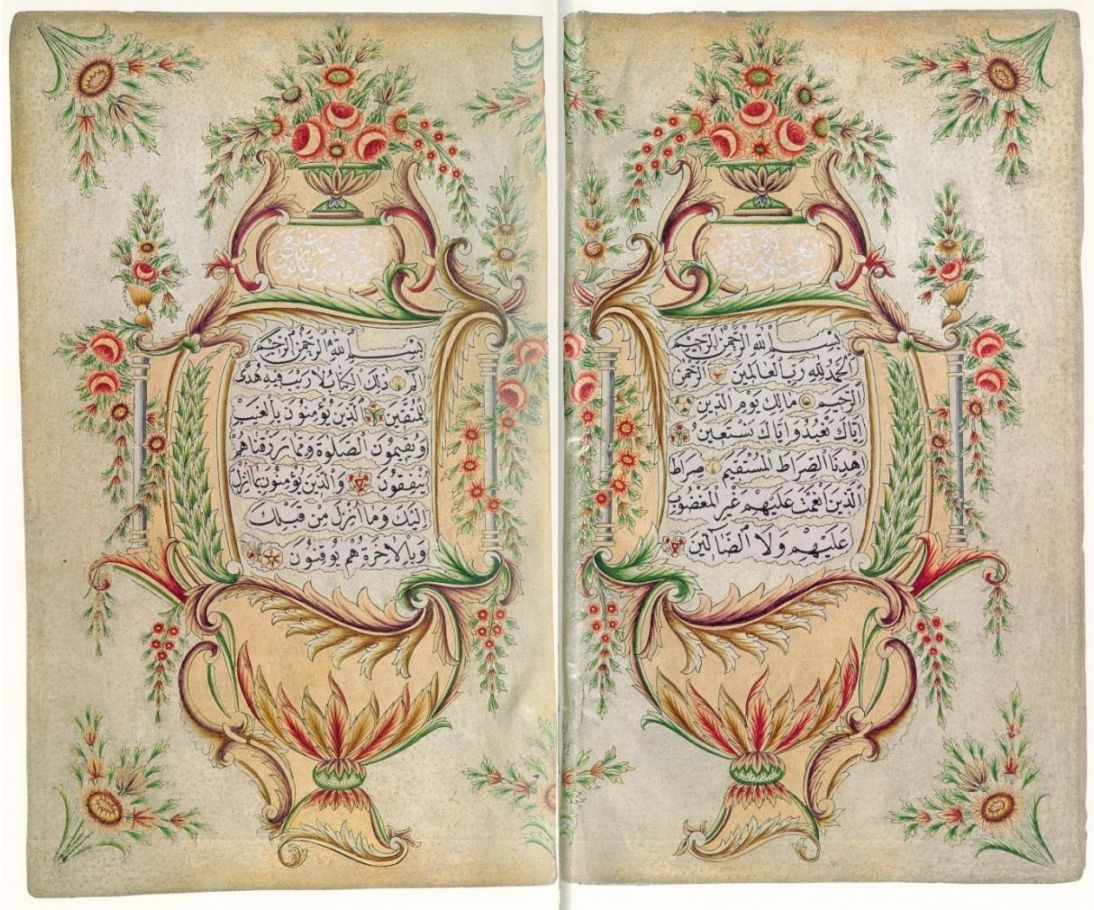 بِسْمِ اللهِ الرَّحْمٰنِ الرَّحِيمِ
اَلْحَمْدُ لِلّٰهِ رَبِّ الْعَالَمِينَ الرَّحْمٰنِ
الرَّحِيمِ مَالِكِ يَوْمِ الدِّينِ
اِيَّاكَ نَعْبُدُ وَاِيَّاكَ نَسْتَعِينُ
اِهْدِنَا الصِّرَاطَ الْمُسْتَقِيمَ صِرَاطَ
الَّذِينَ اَنْعَمْتَ عَلَيْهِمْ غَيْرِ الْمَغْضُوبِ
عَلَيْهِمْ وَلَا الضَّالِّينَ
بِسْمِ اللهِ الرَّحْمٰنِ الرَّحِيمِ
الٓمٓ ذٰلِكَ الْكِتَابُ لَا رَيْبَ فِيهِ هُدًى
لِلْمُتَّقِينَ اَلَّذِينَ يُؤْمِنُونَ بِالْغَيْبِ
وَيُقِيمُونَ الصَّلٰوةَ وَمِمَّا رَزَقْنَاهُمْ
يُنْفِقُونَ وَالَّذِينَ يُؤْمِنُونَ بِمَا اُنْزِلَ
اِلَيْكَ وَمَا اُنْزِلَ مِنْ قَبْلِكَ
وَبِالْاٰخِرَةِ هُمْ يُوقِنُونَ